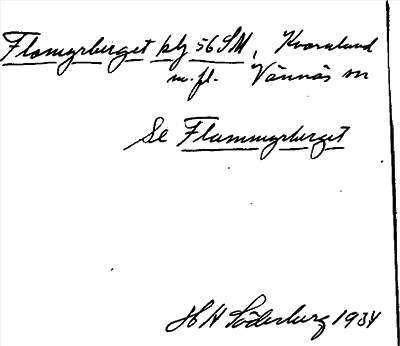 Flomyrberget blg 56 SM, Kvarnlund
m. fl. Vännäs sn
Se Flammyrberget
H H Söderberg 1934